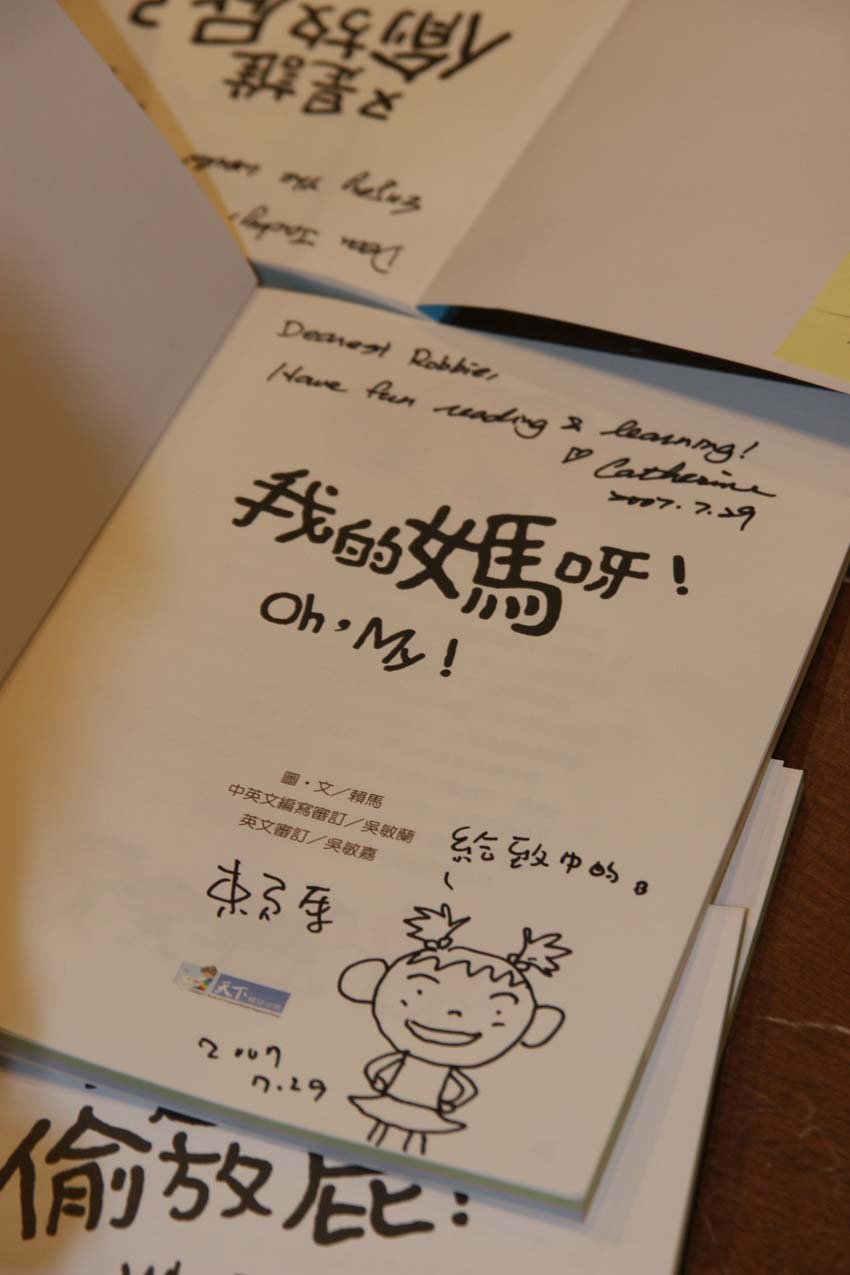 偷放屁?
又是誰
Enjoy the
Dear
Dearest Robbie,
Have fun reading & learning!
♡ Catherine
2007.7.29
我的媽呀!
Oh,My!
圖・文/賴馬
中英文編寫審訂/吳敏蘭
英文審訂/吳敏嘉
給致中的。
賴馬
天下
2007
7.29
偷放屁?